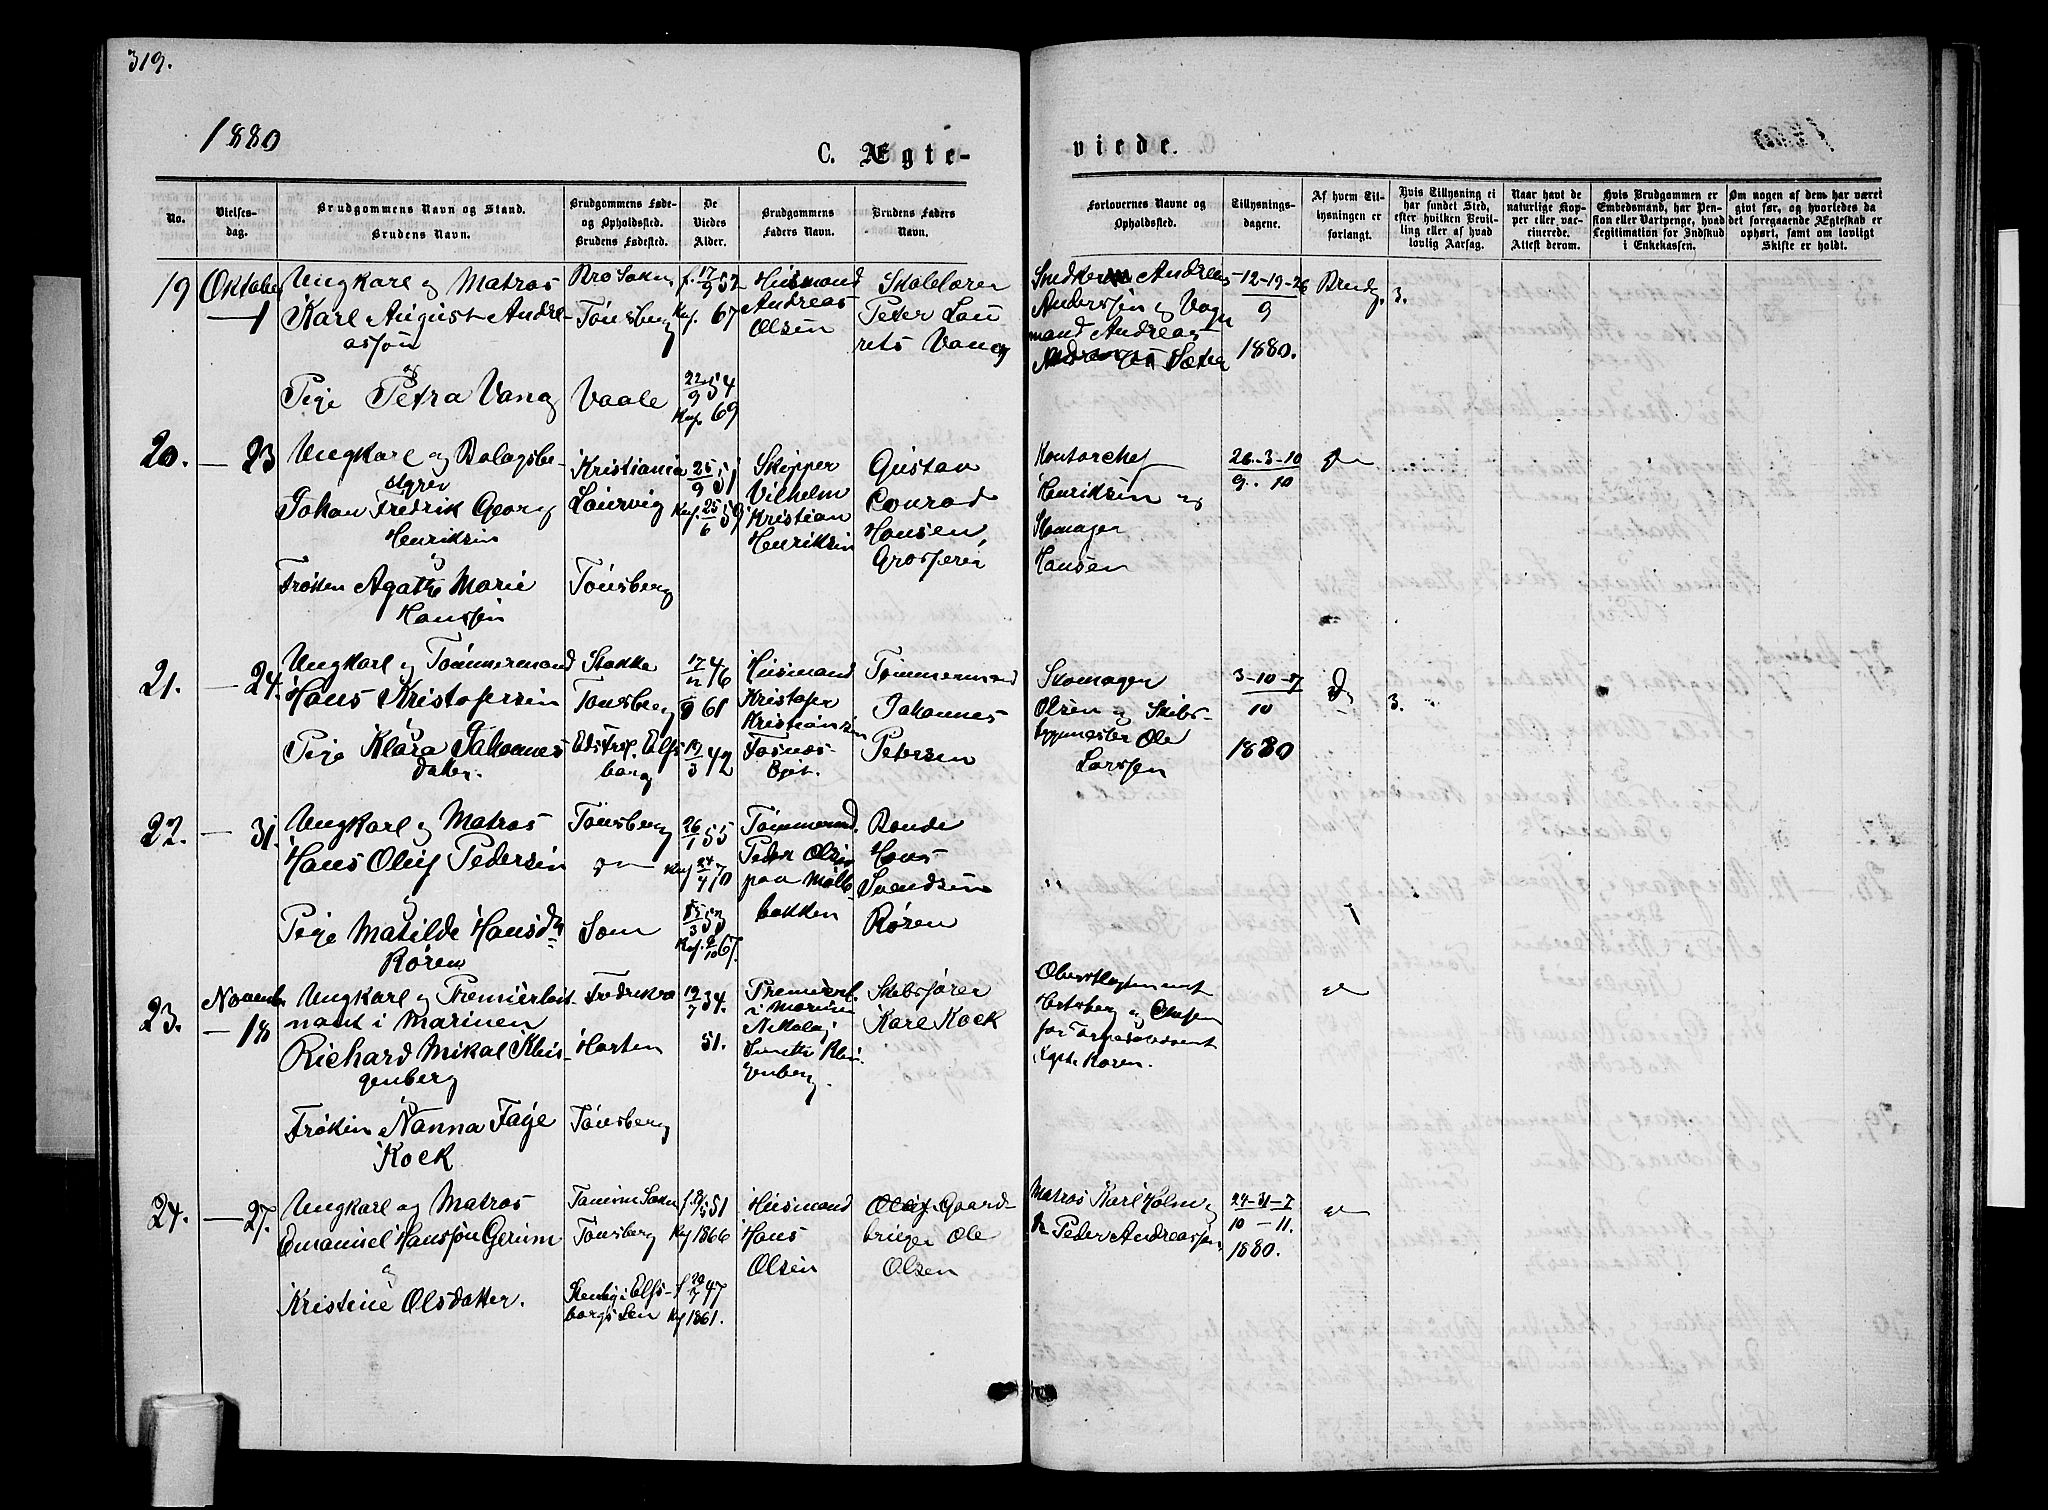 319.
1880
C. Ægte-
viede.
No.
Vielses-
dag.
Brudgommens Navn og Stand.
Brudens Navn.
Brudgommens Føde-
og Opholdssted.
Brudens Fødested.
De
Viedes
Alder.
Brudgommens
Faders Navn.
Brudens Faders
Navn.
Forlovernes Navne og
Opholdssted.
Tillysnings-
dagene.
Af hvem Til-
lysningen er
forlangt.
Hvis Tillysning ei
har fundet Sted,
efter hvilken Bevil-
ling eller af hvad
lovlig Aarsag.
Naar havt de
naturlige Kop-
per eller vac-
cinerede.
Attest derom.
Hvis Brudgommen er
Embedsmand, har Pen-
sion eller Vartpenge, hvad
Legitimation for Indskud
i Enkekassen.
Om nogen af dem har været
givt før, og hvorledes da
det foregaaende Ægteskab er
ophørt, samt om lovligt
Skifte er holdt.
19
Oktober
1
Ungkarl og Matros
Karl August Andre-
assøn
og
Pige Petra Vang
Bro Sokn
Tønsberg
Vaale
f. 17/9 52
Knf. 67
22/9 54
Knf. 69
Husmand
Andreas
Olsen
Skolelærer
Peter Lau
rits Vang
Snedker Andreas
Anderssøn og Vogn
mand Andreas
Sæter
12-19-26
9
1880.
Brudg.
3.
20.
23
Ungkarl og Bolagsbe-
styrer
Johan Fredrik Georg
Henriksen
og
Frøken Agathe Marie
Hanssen
Kristiania
Laurvig
Tønsberg
25/9 51
Knf. 25/6 59
Skipper
Vilhelm
Kristian
Henriksen
Gustav
Conrad
Hansen,
Grosserer
Kontorchef
Henriksen og
Skomager
Hansen
26-3-10
9. 10
21.
24.
Ungkarl og Tømmermand
Hans Kristofersen
Pige Klara Johannes
datter.
Stokke
Tønsberg
Elfs
borg
46
61
19/3 42
Husmand
Kristofer
Kristiansen
Tømmermand
Johannes
Petersen
Skomager
Olsen og Skibs-
bygmester Ole
Larssen
3-10-17
10
1880
3.
22.
31.
Ungkarl og Matros
Hans Oluf Pedersen
og
Pige Matilde Hansdtr
Røren
Tønsberg
Sem
26/1 55
Knf 24/4 70
53
Knf. 67.
Tømmermd.
Peder Olsen
paa Mølle
bakken
Bonde
Hans
Svendsen
Røren
"
23.
Novembr
18
Ungkarl og Premierløit
nant i Marinen
Richard Mikal Klin-
genberg
og
Frøken Nanna Faye
Kock
Fredriksv
Horten
Tønsberg
19/7 34.
51.
Premierl.
i Marinen
Nikolaj
Smith Klin
genberg.
Skibsfører
Karl Kock
Oberstløjtenant
Hertzberg og
for
Koren.
24.
27.
Ungkarl og Matros
Emanuel Hanssøn Gerum
og
Kristine Olsdatter.
Tanum Sokn
Tønsberg
Elfs-
borgs Len
51
Knf 1866
f 20/7 47
Knf 1861.
Husmand
Hans
Olsen
Gaard-
bruger Ole
Olsen
Matros Karl Holm og
Peder Andreassen
24-31-7
10-11.
1880.